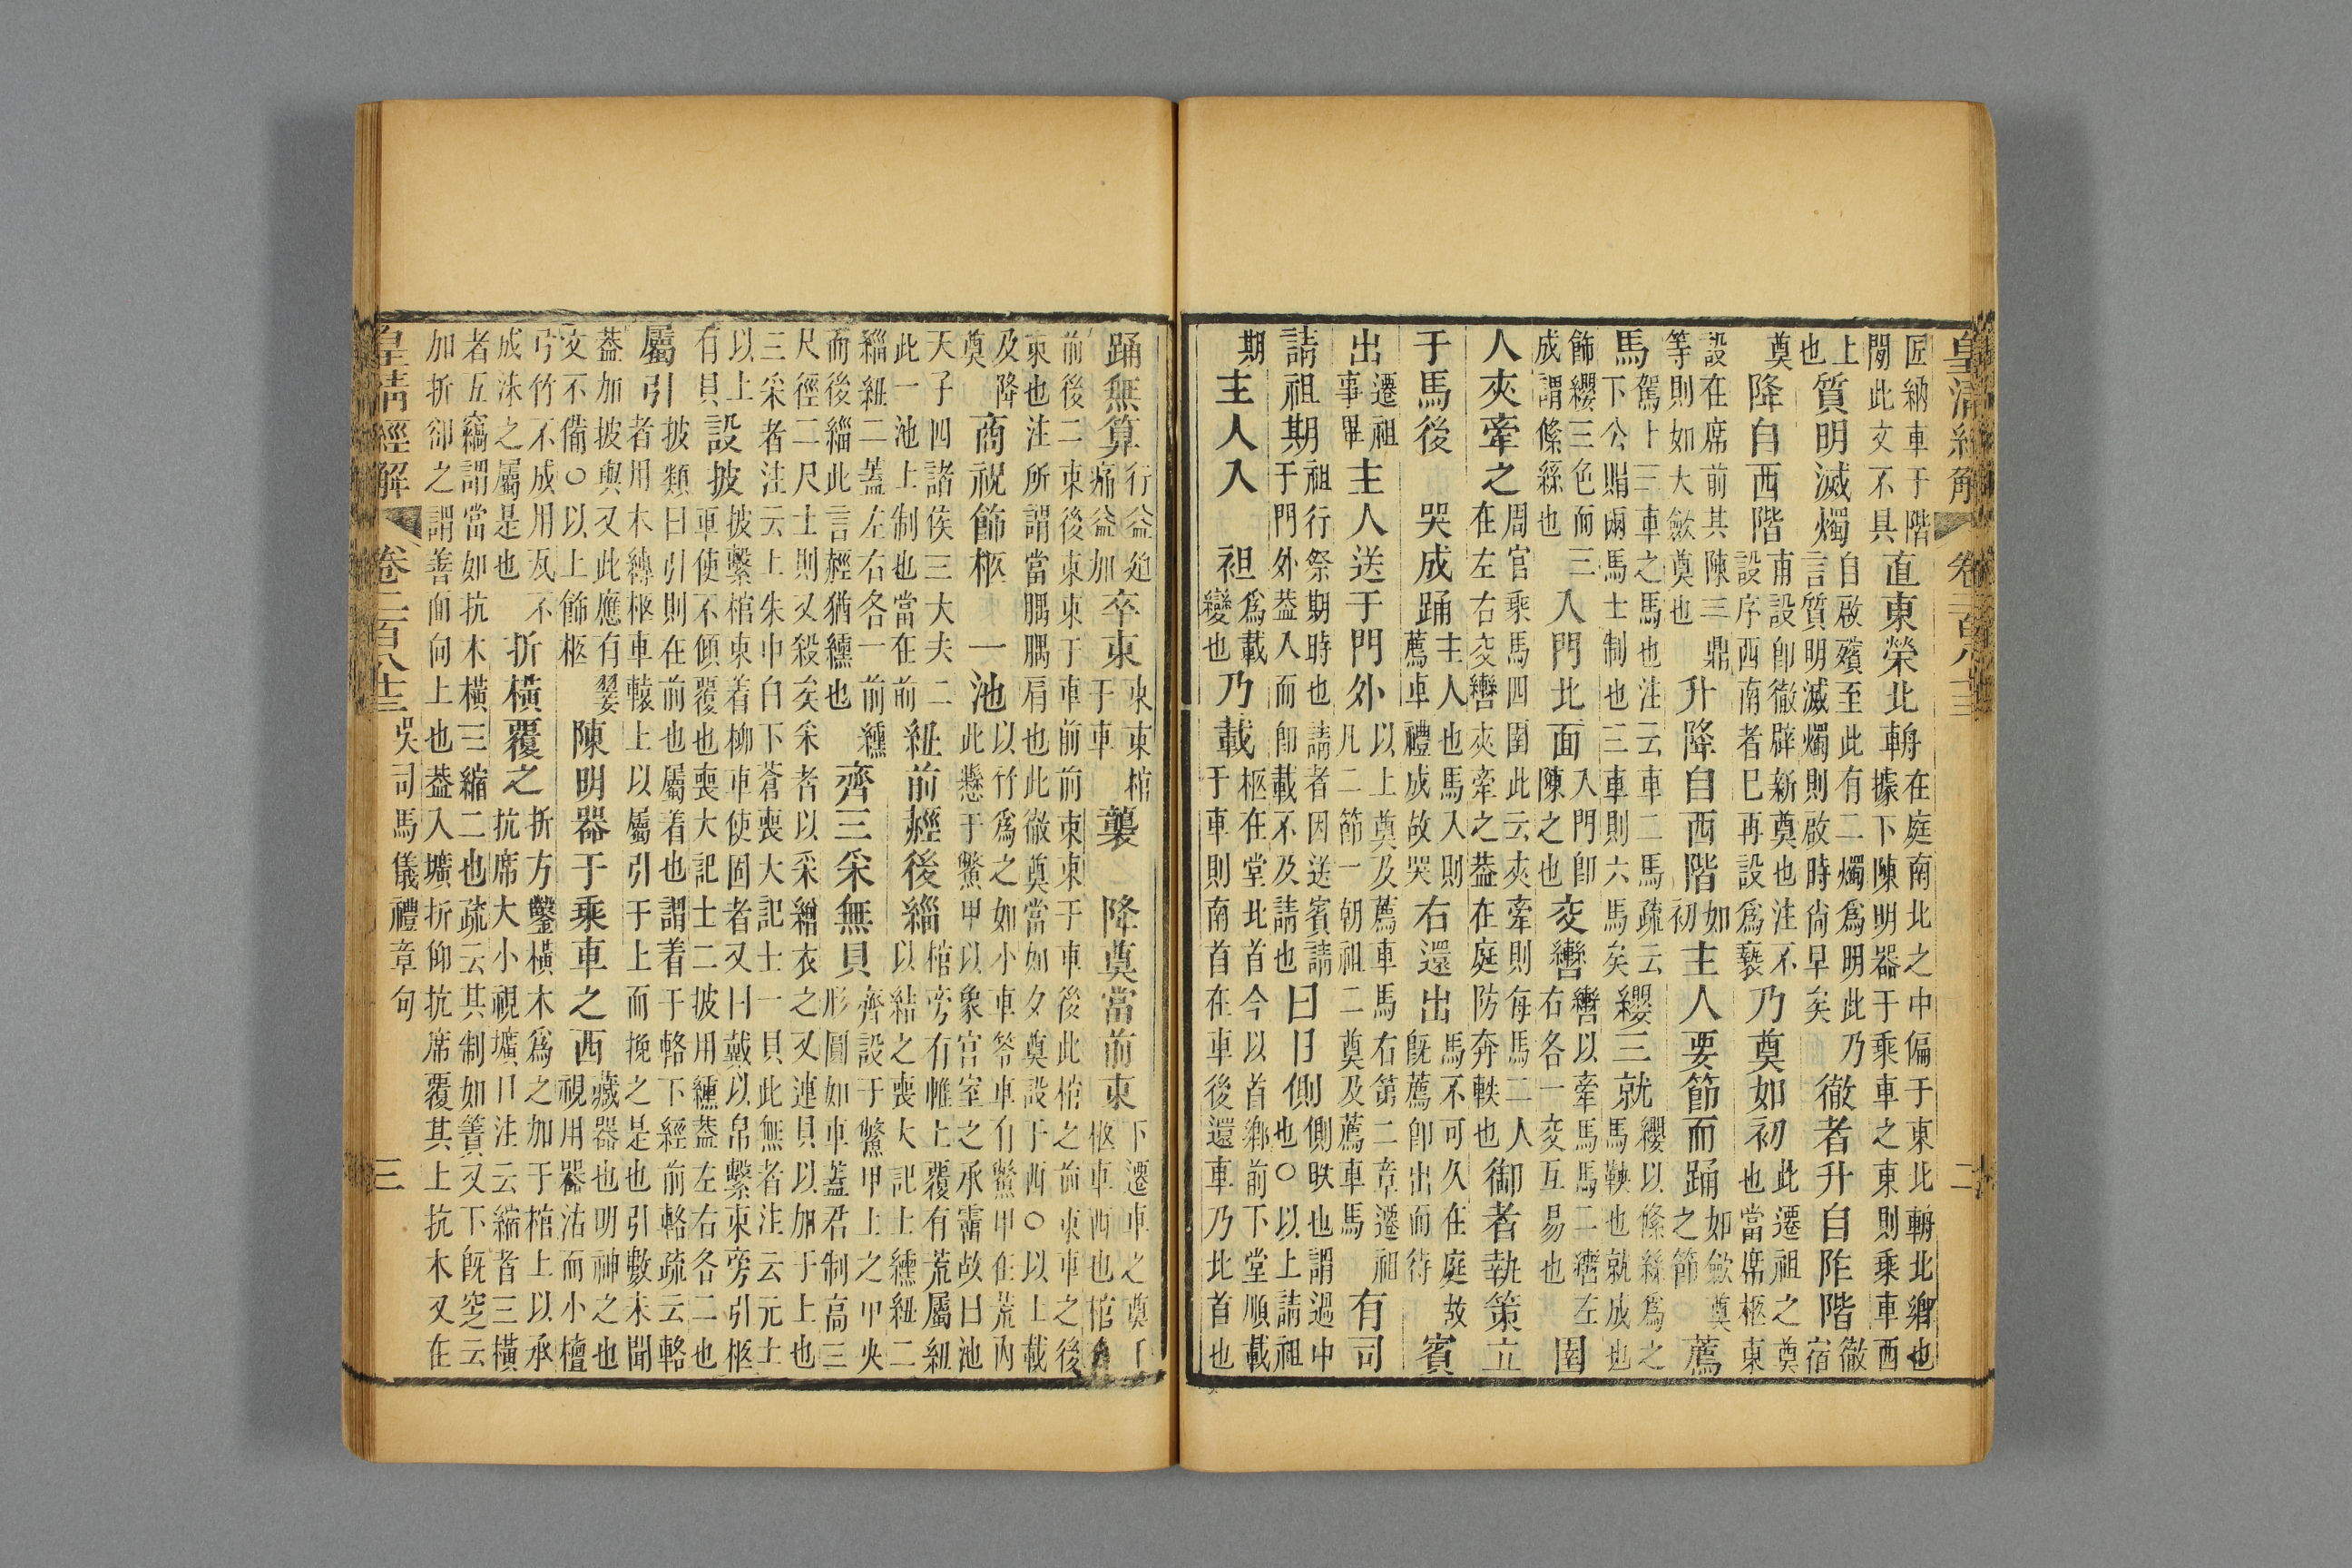 皇清經解
卷二百八十三
二
匠納車于階直東榮北輈在庭南北之中偏于東北輈北鄉也
閒此文不具據下陳明器于乘車之東則乘車西
上質明滅燭自啟殯至此有二燭爲明此乃徹者升自阼階徹
也言質明滅燭則啟時尙早矣宿
奠降自西階甫設卽徹辟新奠也注不乃奠如初此遷祖之奠
設序西南者巳再設爲褻也當席柩東
設在席前其陳三鼎升降自西階如主人要節而踊如斂奠薦
等則如大斂奠也初之節
馬駕上三車之馬也注云車二馬疏云纓三就纓以絛絲爲之
下公賵兩馬士制也三車則六馬矣馬鞅也就成也
飾纓三色而三入門北面入門卽交轡轡以牽馬馬二轡左圉
成謂絛絲也陳之也右各一交互易也
人夾牽之周官乘馬四圉此云夾牽則每馬二人御者執策立
在左右交轡夾牽之葢在庭防奔軼也
于馬後哭成踊主人也馬入則右還出馬不可久在庭故賓
薦車禮成故哭旣薦卽出而待
出遷祖主人送于門外以上奠及薦車馬右第二章遷祖有司
事畢凡二節一朝祖二奠及薦車馬
請祖期祖行祭期時也請者因送賓請曰日側側昳也謂過中
于門外葢入而卽載不及請也也○以上請祖
期主人入袒爲載乃載柩在堂北首今以首鄉前下堂順載
變也于車則南首在車後還車乃北首也
踊無算行益廹卒束束束棺襲降奠當前束下遷車之奠
痛益加于車柩車西也棺
前後二束後束束于車前前束束于車後此棺之前束車之後
束也注所謂當腢腢肩也此徹奠當如夕奠設于西○以上載
及降商祝飾柩一池以竹爲之如小車笭車有鱉甲在荒內
奠此懸于鱉甲以象宮室之承霤故曰池
天子四諸侯三大夫二紐前䞓後緇棺旁有帷上覆有荒屬紐
此一池上制也當在前以結之喪大記士纁紐二
緇紐二蓋左右各一前纁齊三采無貝齊設于鱉甲上之甲央
而後緇此言䞓猶纁也形圓如車蓋君制高三
尺徑二尺士則又殺矣采者以采繒衣之又連貝以加于上也
三采者注云上朱中白下蒼喪大記士一貝此無者注云元士
以上設披披繫棺束着柳車使固者又曰戴以帛繫束旁引柩
有貝車使不傾覆也喪大記士二披用纁葢左右各二也
屬引披類曰引則在前也屬着也謂着于輅下經前輅疏云輅
者用木縛柩車轅上以屬引于上而挽之是也引數未聞
葢加披與又此應有翣陳明器于乘車之西藏器也明神之也
文不備○以上飾柩視用器沽而小檀
弓竹不成用瓦不折橫覆之折方鑿橫木爲之加于棺上以承
成沬之屬是也抗席大小視壙口注云縮者三橫
者五竊謂當如抗木橫三縮二也疏云其制如簀又下旣窆云
加折卻之謂善面向上也葢入壙折仰抗席覆其上抗木又在
皇清經解
卷二百八十三
吳司馬儀禮章句
三